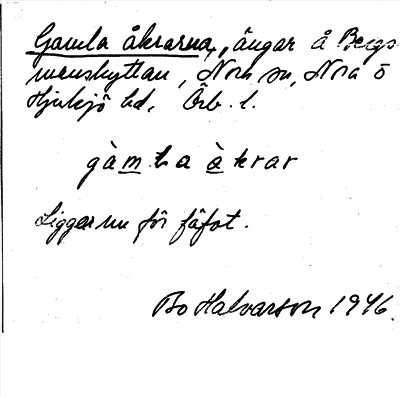 Gamla åkrarna, ängar å Bergs-
manshyttan, Nora sn, Nora o
Hjulsjö hd, Örb. l.
gàmla àkrar
Ligger nu för fäfot.
Bo Halvarson 1946.